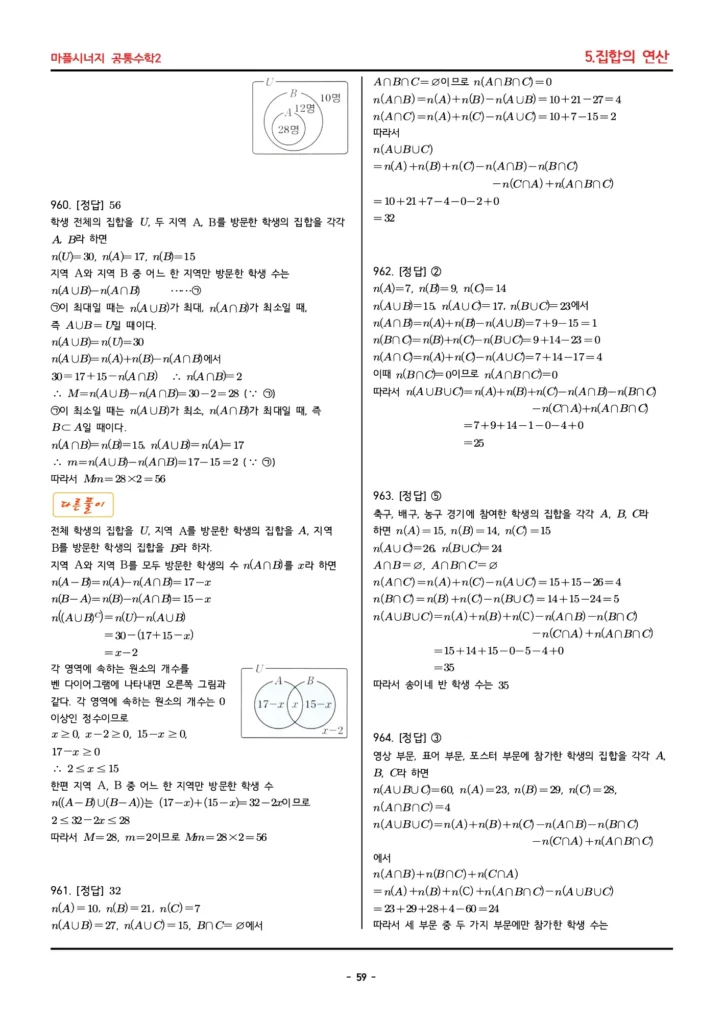 마플시너지 공통수학2
5.집합의 연산
U
B
10명
12명
A
28명
960. [정답] 56
학생 전체의 집합을 U, 두 지역 A, B를 방문한 학생의 집합을 각각
A, B라 하면
n(U)=30, n(A)=17, n(B)=15
지역 A와 지역 B 중 어느 한 지역만 방문한 학생 수는
n(A∪B)-n(A∩B) ……㉠
㉠이 최대일 때는 n(A∪B)가 최대, n(A∩B)가 최소일 때,
즉 A∪B=U일 때이다.
n(A∪B)=n(U)=30
n(A∪B)=n(A)+n(B)-n(A∩B)에서
30=17+15-n(A∩B) ∴ n(A∩B)=2
∴ M=n(A∪B)-n(A∩B)=30-2=28 (∵ ㉠)
㉠이 최소일 때는 n(A∪B)가 최소, n(A∩B)가 최대일 때, 즉
B⊂A일 때이다.
n(A∩B)=n(B)=15, n(A∪B)=n(A)=17
∴ m=n(A∪B)-n(A∩B)=17-15=2 (∵ ㉠)
따라서 Mm=28×2=56
다른풀이
전체 학생의 집합을 U, 지역 A를 방문한 학생의 집합을 A, 지역
B를 방문한 학생의 집합을 B라 하자.
지역 A와 지역 B를 모두 방문한 학생의 수 n(A∩B)를 x라 하면
n(A-B)=n(A)-n(A∩B)=17-x
n(B-A)=n(B)-n(A∩B)=15-x
n((A∪B)^C)=n(U)-n(A∪B)
=30-(17+15-x)
=x-2
각 영역에 속하는 원소의 개수를
벤 다이어그램에 나타내면 오른쪽 그림과
같다. 각 영역에 속하는 원소의 개수는 0
이상인 정수이므로
x≥0, x-2≥0, 15-x≥0,
17-x≥0
∴ 2≤x≤15
U
A B
17-x x 15-x
x-2
한편 지역 A, B 중 어느 한 지역만 방문한 학생 수
n((A-B)∪(B-A))는 (17-x)+(15-x)=32-2x이므로
2≤32-2x≤28
따라서 M=28, m=2이므로 Mm=28×2=56
961. [정답] 32
n(A)=10, n(B)=21, n(C)=7
n(A∪B)=27, n(A∪C)=15, B∩C=∅에서
A∩B∩C=∅이므로 n(A∩B∩C)=0
n(A∩B)=n(A)+n(B)-n(A∪B)=10+21-27=4
n(A∩C)=n(A)+n(C)-n(A∪C)=10+7-15=2
따라서
n(A∪B∪C)
=n(A)+n(B)+n(C)-n(A∩B)-n(B∩C)
-n(C∩A)+n(A∩B∩C)
=10+21+7-4-0-2+0
=32
962. [정답] ②
n(A)=7, n(B)=9, n(C)=14
n(A∪B)=15, n(A∪C)=17, n(B∪C)=23에서
n(A∩B)=n(A)+n(B)-n(A∪B)=7+9-15=1
n(B∩C)=n(B)+n(C)-n(B∪C)=9+14-23=0
n(A∩C)=n(A)+n(C)-n(A∪C)=7+14-17=4
이때 n(B∩C)=0이므로 n(A∩B∩C)=0
따라서 n(A∪B∪C)=n(A)+n(B)+n(C)-n(A∩B)-n(B∩C)
-n(C∩A)+n(A∩B∩C)
=7+9+14-1-0-4+0
=25
963. [정답] ⑤
축구, 배구, 농구 경기에 참여한 학생의 집합을 각각 A, B, C라
하면 n(A)=15, n(B)=14, n(C)=15
n(A∪C)=26, n(B∪C)=24
A∩B=∅, A∩B∩C=∅
n(A∩C)=n(A)+n(C)-n(A∪C)=15+15-26=4
n(B∩C)=n(B)+n(C)-n(B∪C)=14+15-24=5
n(A∪B∪C)=n(A)+n(B)+n(C)-n(A∩B)-n(B∩C)
-n(C∩A)+n(A∩B∩C)
=15+14+15-0-5-4+0
=35
따라서 송이네 반 학생 수는 35
964. [정답] ③
영상 부문, 표어 부문, 포스터 부문에 참가한 학생의 집합을 각각 A,
B, C라 하면
n(A∪B∪C)=60, n(A)=23, n(B)=29, n(C)=28,
n(A∩B∩C)=4
n(A∪B∪C)=n(A)+n(B)+n(C)-n(A∩B)-n(B∩C)
-n(C∩A)+n(A∩B∩C)
에서
n(A∩B)+n(B∩C)+n(C∩A)
=n(A)+n(B)+n(C)+n(A∩B∩C)-n(A∪B∪C)
=23+29+28+4-60=24
따라서 세 부문 중 두 가지 부문에만 참가한 학생 수는
- 59 -